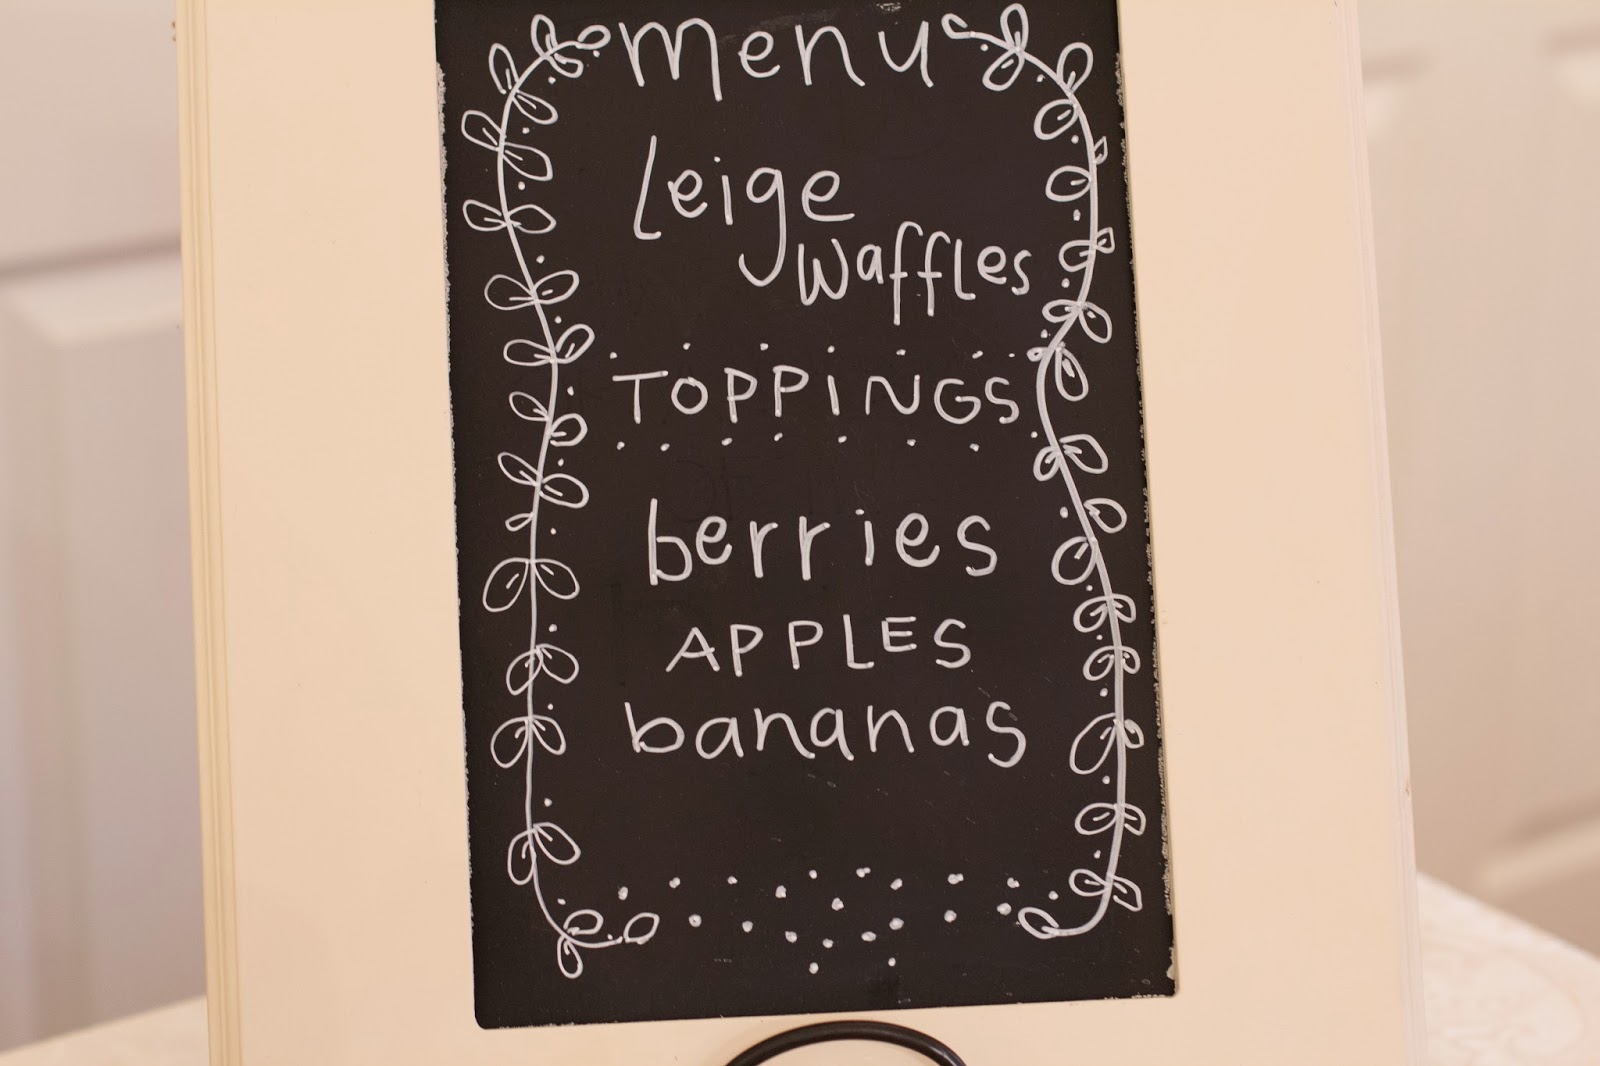 menu
Leige
Waffles
TOPPiNGS
berries
APPLES
bananas